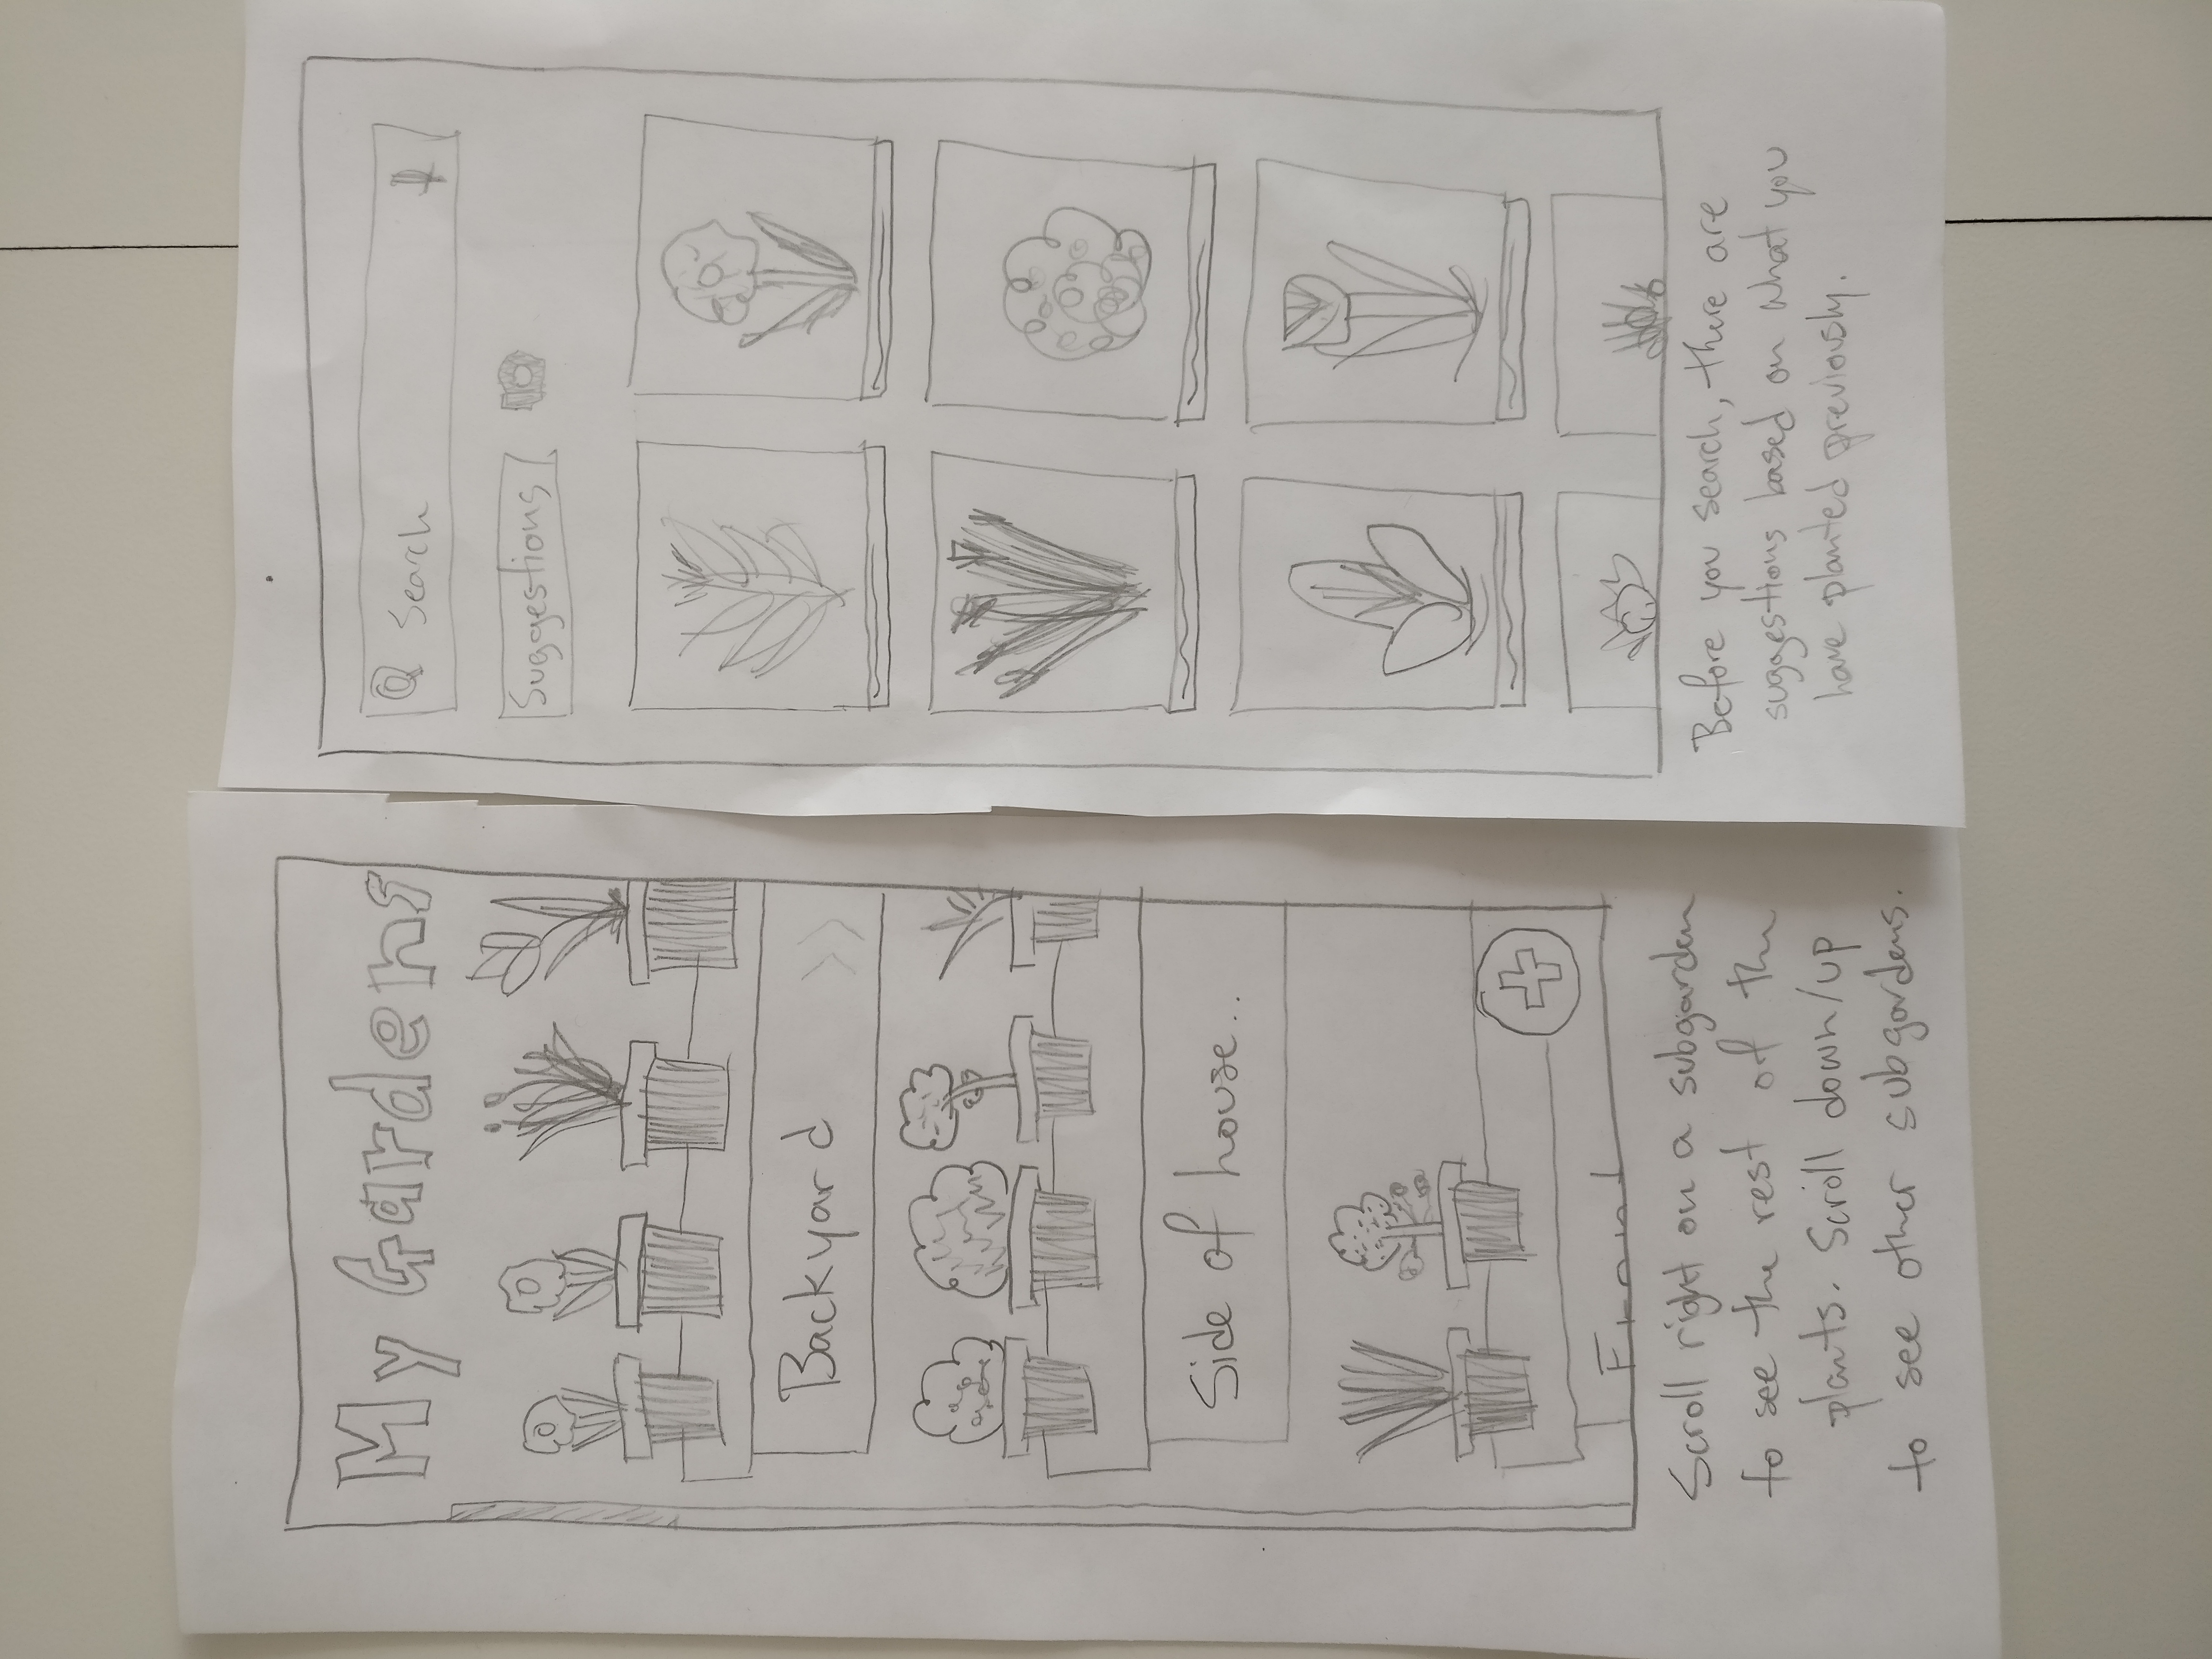 My Gardens
Backyard >>
Side of house..
Front
Scroll right on a subgarden
to see the rest of the
plants. Scroll down/up
to see other subgardens.
Search
Suggestions
Before you search, there are
suggestions based on what you
have planted previously.